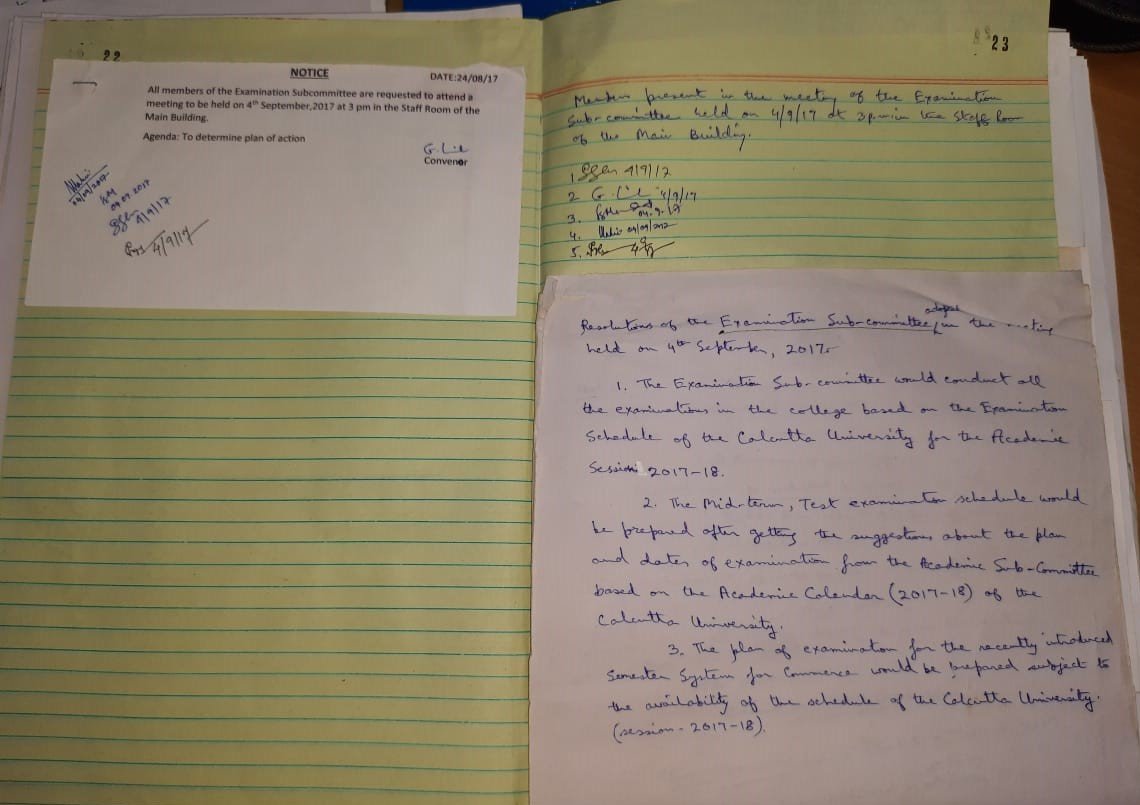 22
NOTICE
DATE:24/08/17
All members of the Examination Subcommittee are requested to attend a
meeting to be held on 4th September,2017 at 3 pm in the Staff Room of the
Main Building.
Agenda: To determine plan of action
Convenor
04/09/2017
04.09.2017
4/9/17
4/9/17
23
Members present in the meeting of the Examination
Sub-committee held on 4/9/17 at 3 p.m in the Staff Room
of the Main Building.
1. 4/9/17
2. 4/9/17
3. 04.9.17
4. 04/09/2017
5.
Resolutions of the Examination Sub-committee, adopted in the meeting
held on 4th September, 2017.
1. The Examination Sub-committee would conduct all
the examinations in the college based on the Examination
Schedule of the Calcutta University for the Academic
Session 2017-18.
2. The Mid-term, Test examination schedule would
be prepared after getting the suggestions about the plan
and dates of examination from the Academic Sub-Committee
based on the Academic Calendar (2017-18) of the
Calcutta University.
3. The plan of examination for the recently introduced
Semester System for Commerce would be prepared subject to
the availability of the schedule of the Calcutta University.
(session - 2017-18).